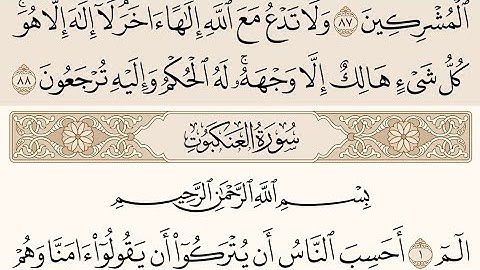 ٱلۡمُشۡرِكِينَ ٨٧ وَلَا تَدۡعُ مَعَ ٱللَّهِ إِلَٰهًا ءَاخَرَۘ لَآ إِلَٰهَ إِلَّا هُوَۚ
كُلُّ شَيۡءٍ هَالِكٌ إِلَّا وَجۡهَهُۥۚ لَهُ ٱلۡحُكۡمُ وَإِلَيۡهِ تُرۡجَعُونَ ٨٨
سُورَةُ العَنكَبُوتِ
بِسۡمِ ٱللَّهِ ٱلرَّحۡمَٰنِ ٱلرَّحِيمِ
الٓمٓ ١ أَحَسِبَ ٱلنَّاسُ أَن يُتۡرَكُوٓاْ أَن يَقُولُوٓاْ ءَامَنَّا وَهُمۡ